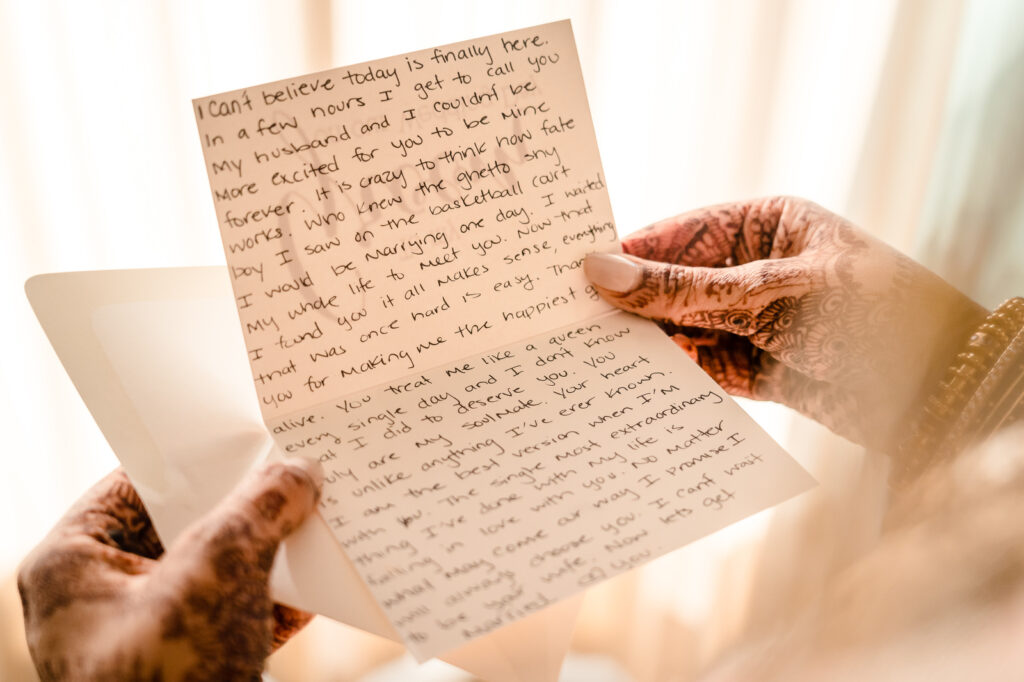 I can't believe today is finally here.
In a few hours I get to call you
my husband and I couldn't be
more excited for you to be mine
forever. It is crazy to think how fate
works. Who knew the ghetto shy
boy I saw on the basketball court
I would be marrying one day. I waited
my whole life to meet you. Now that
I found you it all makes sense, everything
that was once hard is easy. Than
you for making me the happiest g
alive. You treat me like a queen
every single day and I don't know
at I did to deserve you. You
uly are my soulmate. Your heart
is unlike anything I've ever known.
I am the best version when I'm
with you. The single most extraordinary
thing I've done with my life is
falling in love with you. No matter
what may come our way I promise I
will always choose you. I can't wait
to be your wife. Now lets get
married